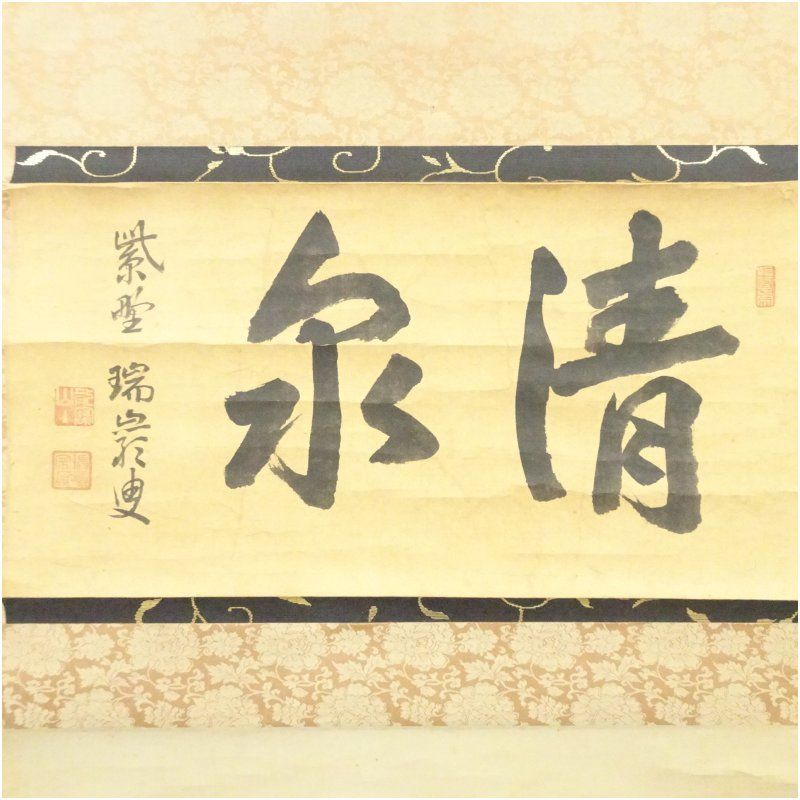 清泉
紫野 瑞巌叟